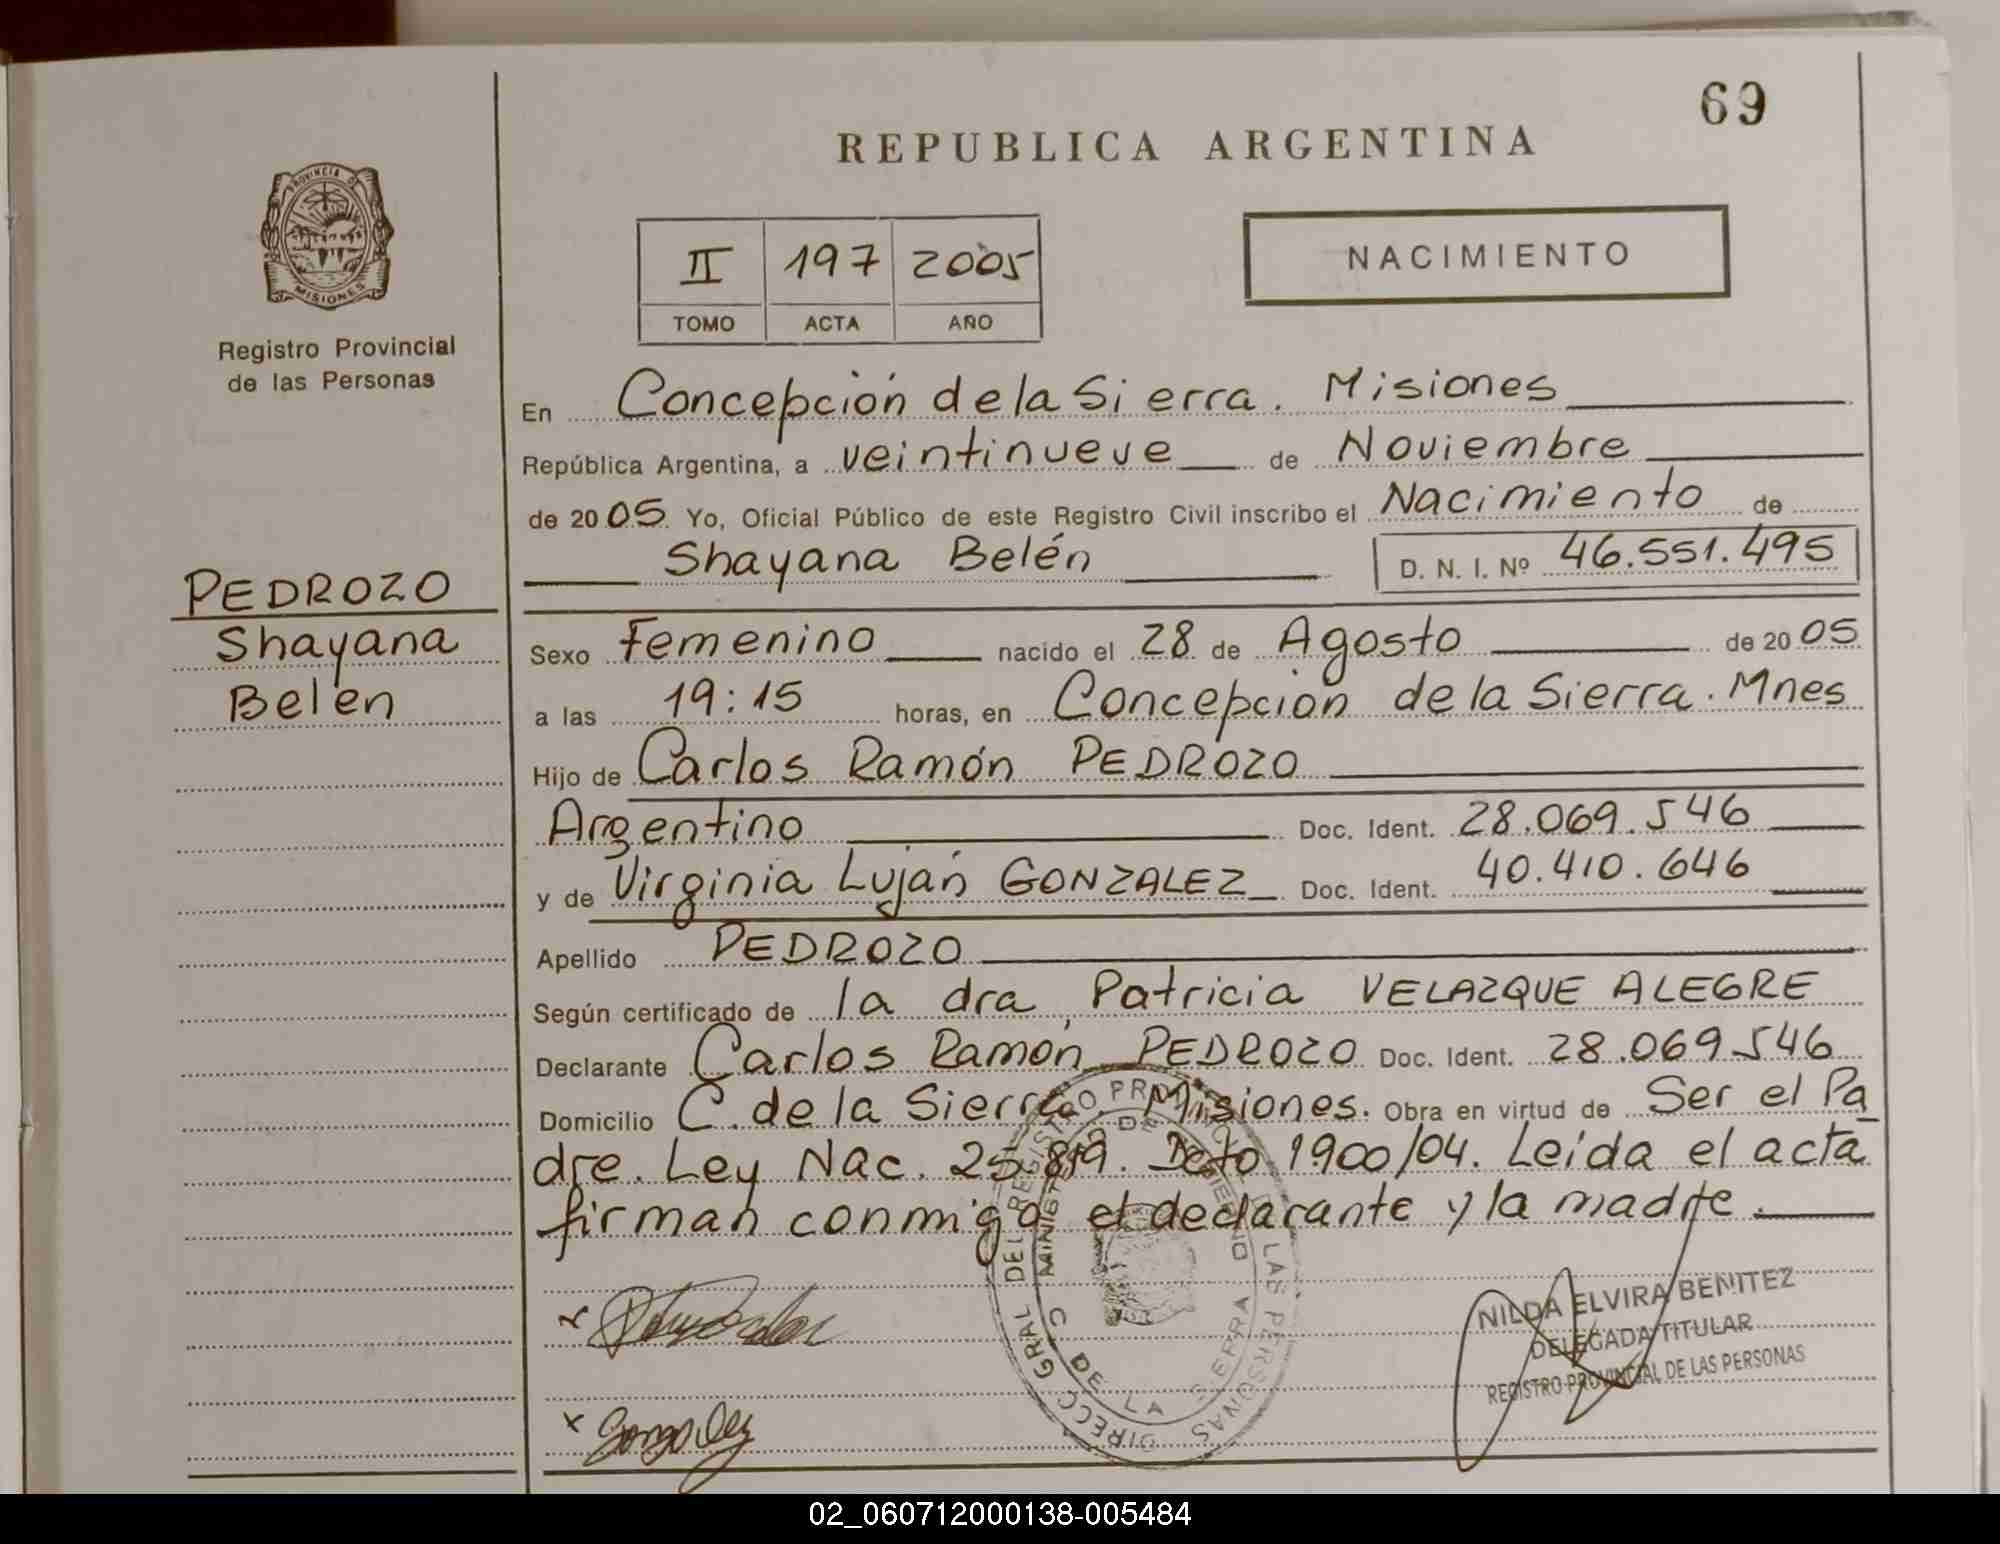 69
REPUBLICA ARGENTINA
PROVINCIA DE
MISIONES
Registro Provincial
de las Personas
II 197 2005
TOMO ACTA AÑO
NACIMIENTO
En Concepción de la Sierra. Misiones
República Argentina, a veintinueve de Noviembre
de 2005 Yo, Oficial Público de este Registro Civil inscribo el Nacimiento de
Shayana Belén D. N. I. Nº 46.551.495
PEDROZO
Shayana
Belén
Sexo Femenino nacido el 28 de Agosto de 2005
a las 19:15 horas, en Concepción de la Sierra. Mnes
Hijo de Carlos Ramón PEDROZO
Argentino Doc. Ident. 28.069.546
y de Virginia Luján GONZALEZ Doc. Ident. 40.410.646
Apellido PEDROZO
Según certificado de la dra, Patricia VELAZQUE ALEGRE
Declarante Carlos Ramón PEDROZO Doc. Ident. 28.069.546
Domicilio C. de la Sierra. Misiones. Obra en virtud de Ser el Pa
dre. Ley Nac. 25.819. Dcto 1900/04. Leída el acta
firman conmigo el declarante y la madre.
DIRECC GRAL DEL REGISTRO PROVINCIAL DE LAS PERSONAS
C DE LA SIERRA
x
x Gonzalez
NILDA ELVIRA BENITEZ
DELEGADA TITULAR
REGISTRO PROVINCIAL DE LAS PERSONAS
02_060712000138-005484